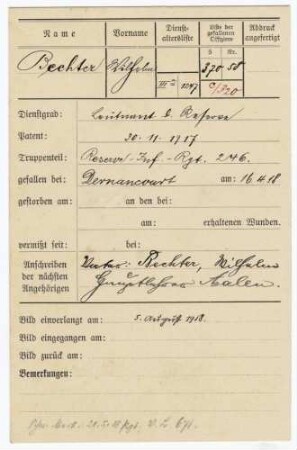 Name Vorname Dienstaltersliste Liste der gefallenen Offiziere Abdruck angefertigt
S Nr.
Bechter Wilhelm III 1047 370 58
Dienstgrad: Leutnant d. Reserve
Patent: 30.11.1917
Truppenteil: Reserve-Inf.-Rgt. 246.
gefallen bei: Dernancourt am: 16.4.18
gestorben am: an den bei:
am: erhaltenen Wunden.
vermißt seit: bei:
Anschreiben der nächsten Angehörigen
Vater: Bechter, Wilhelm
Hauptlehrer Aalen.
Bild einverlangt am: 5. August 1918.
Bild eingegangen am:
Bild zurück am:
Bemerkungen: